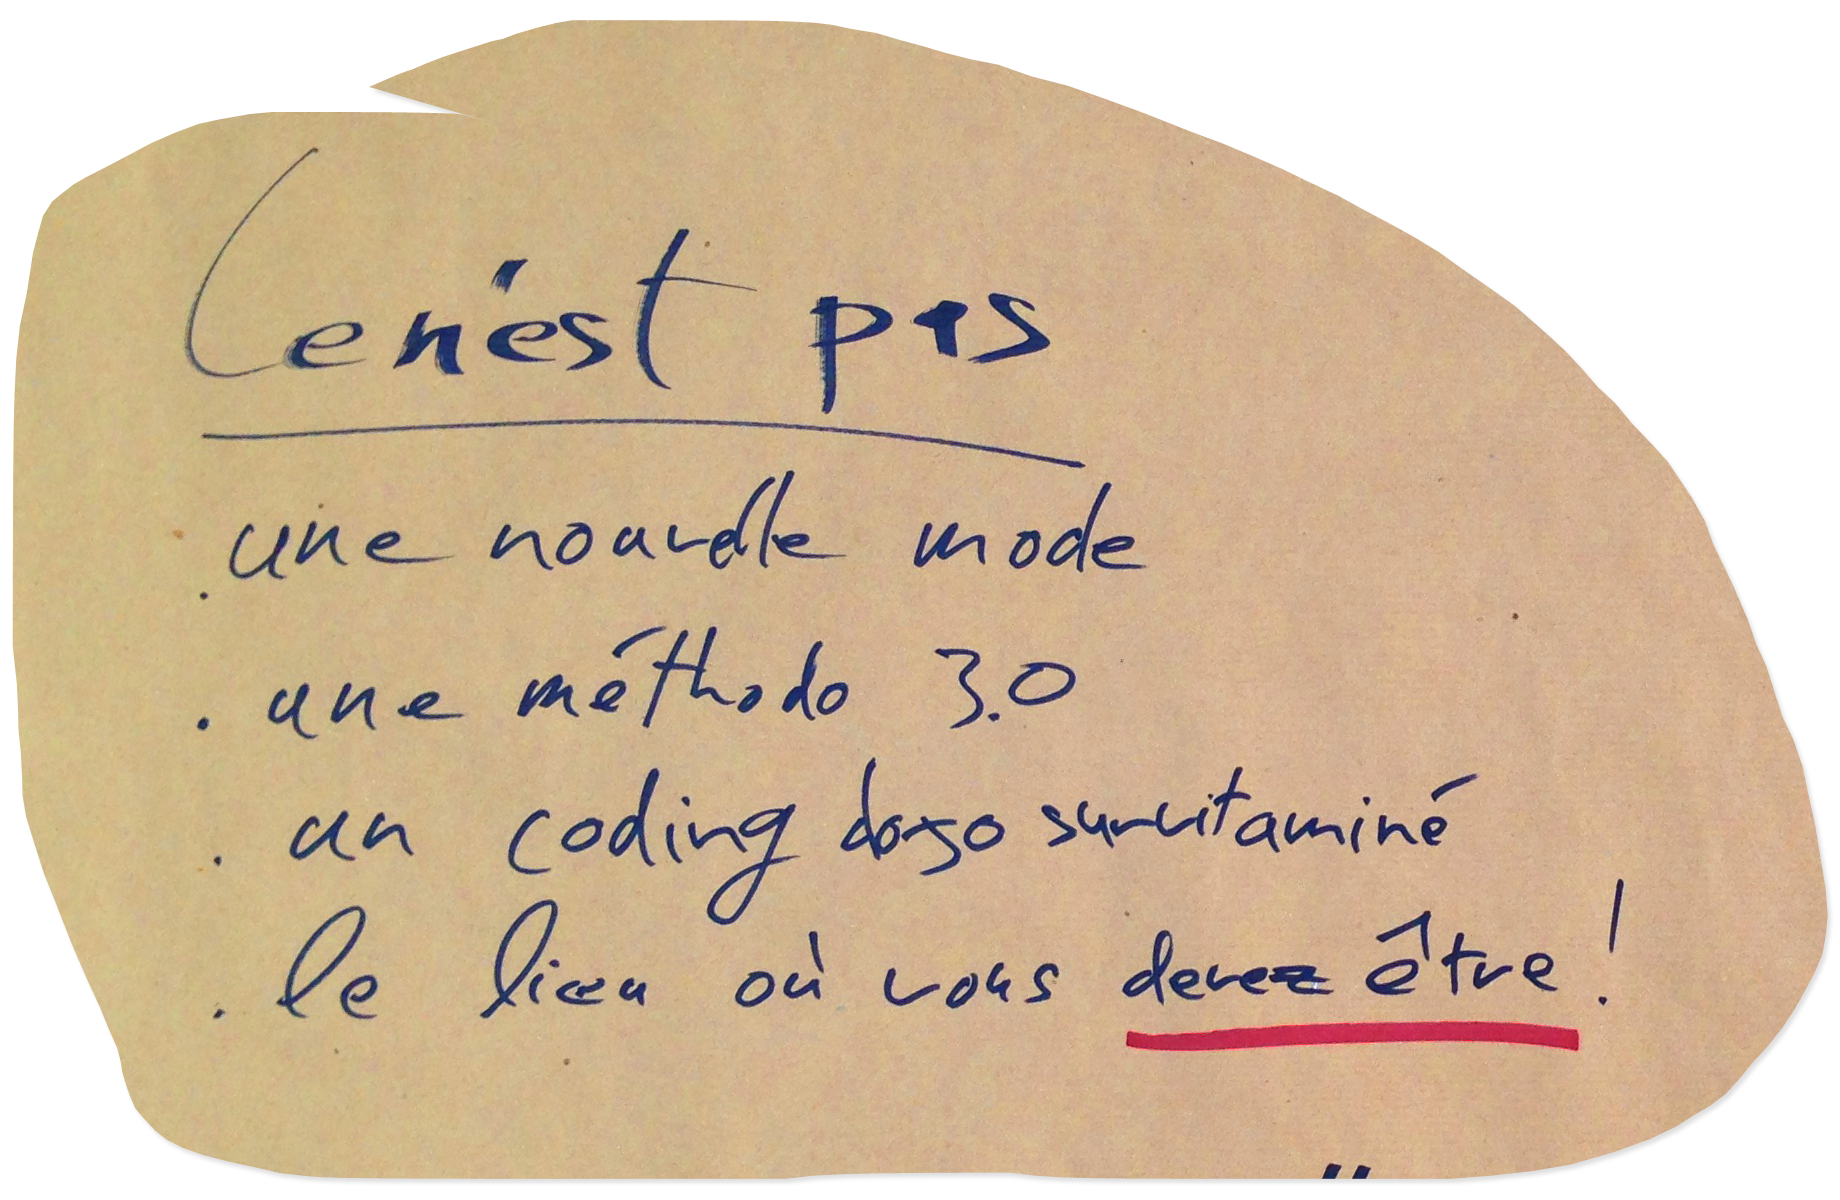 Ce n'est pas
. une nouvelle mode
. une méthodo 3.0
. un coding dojo survitaminé
. le lieu où vous devez être !